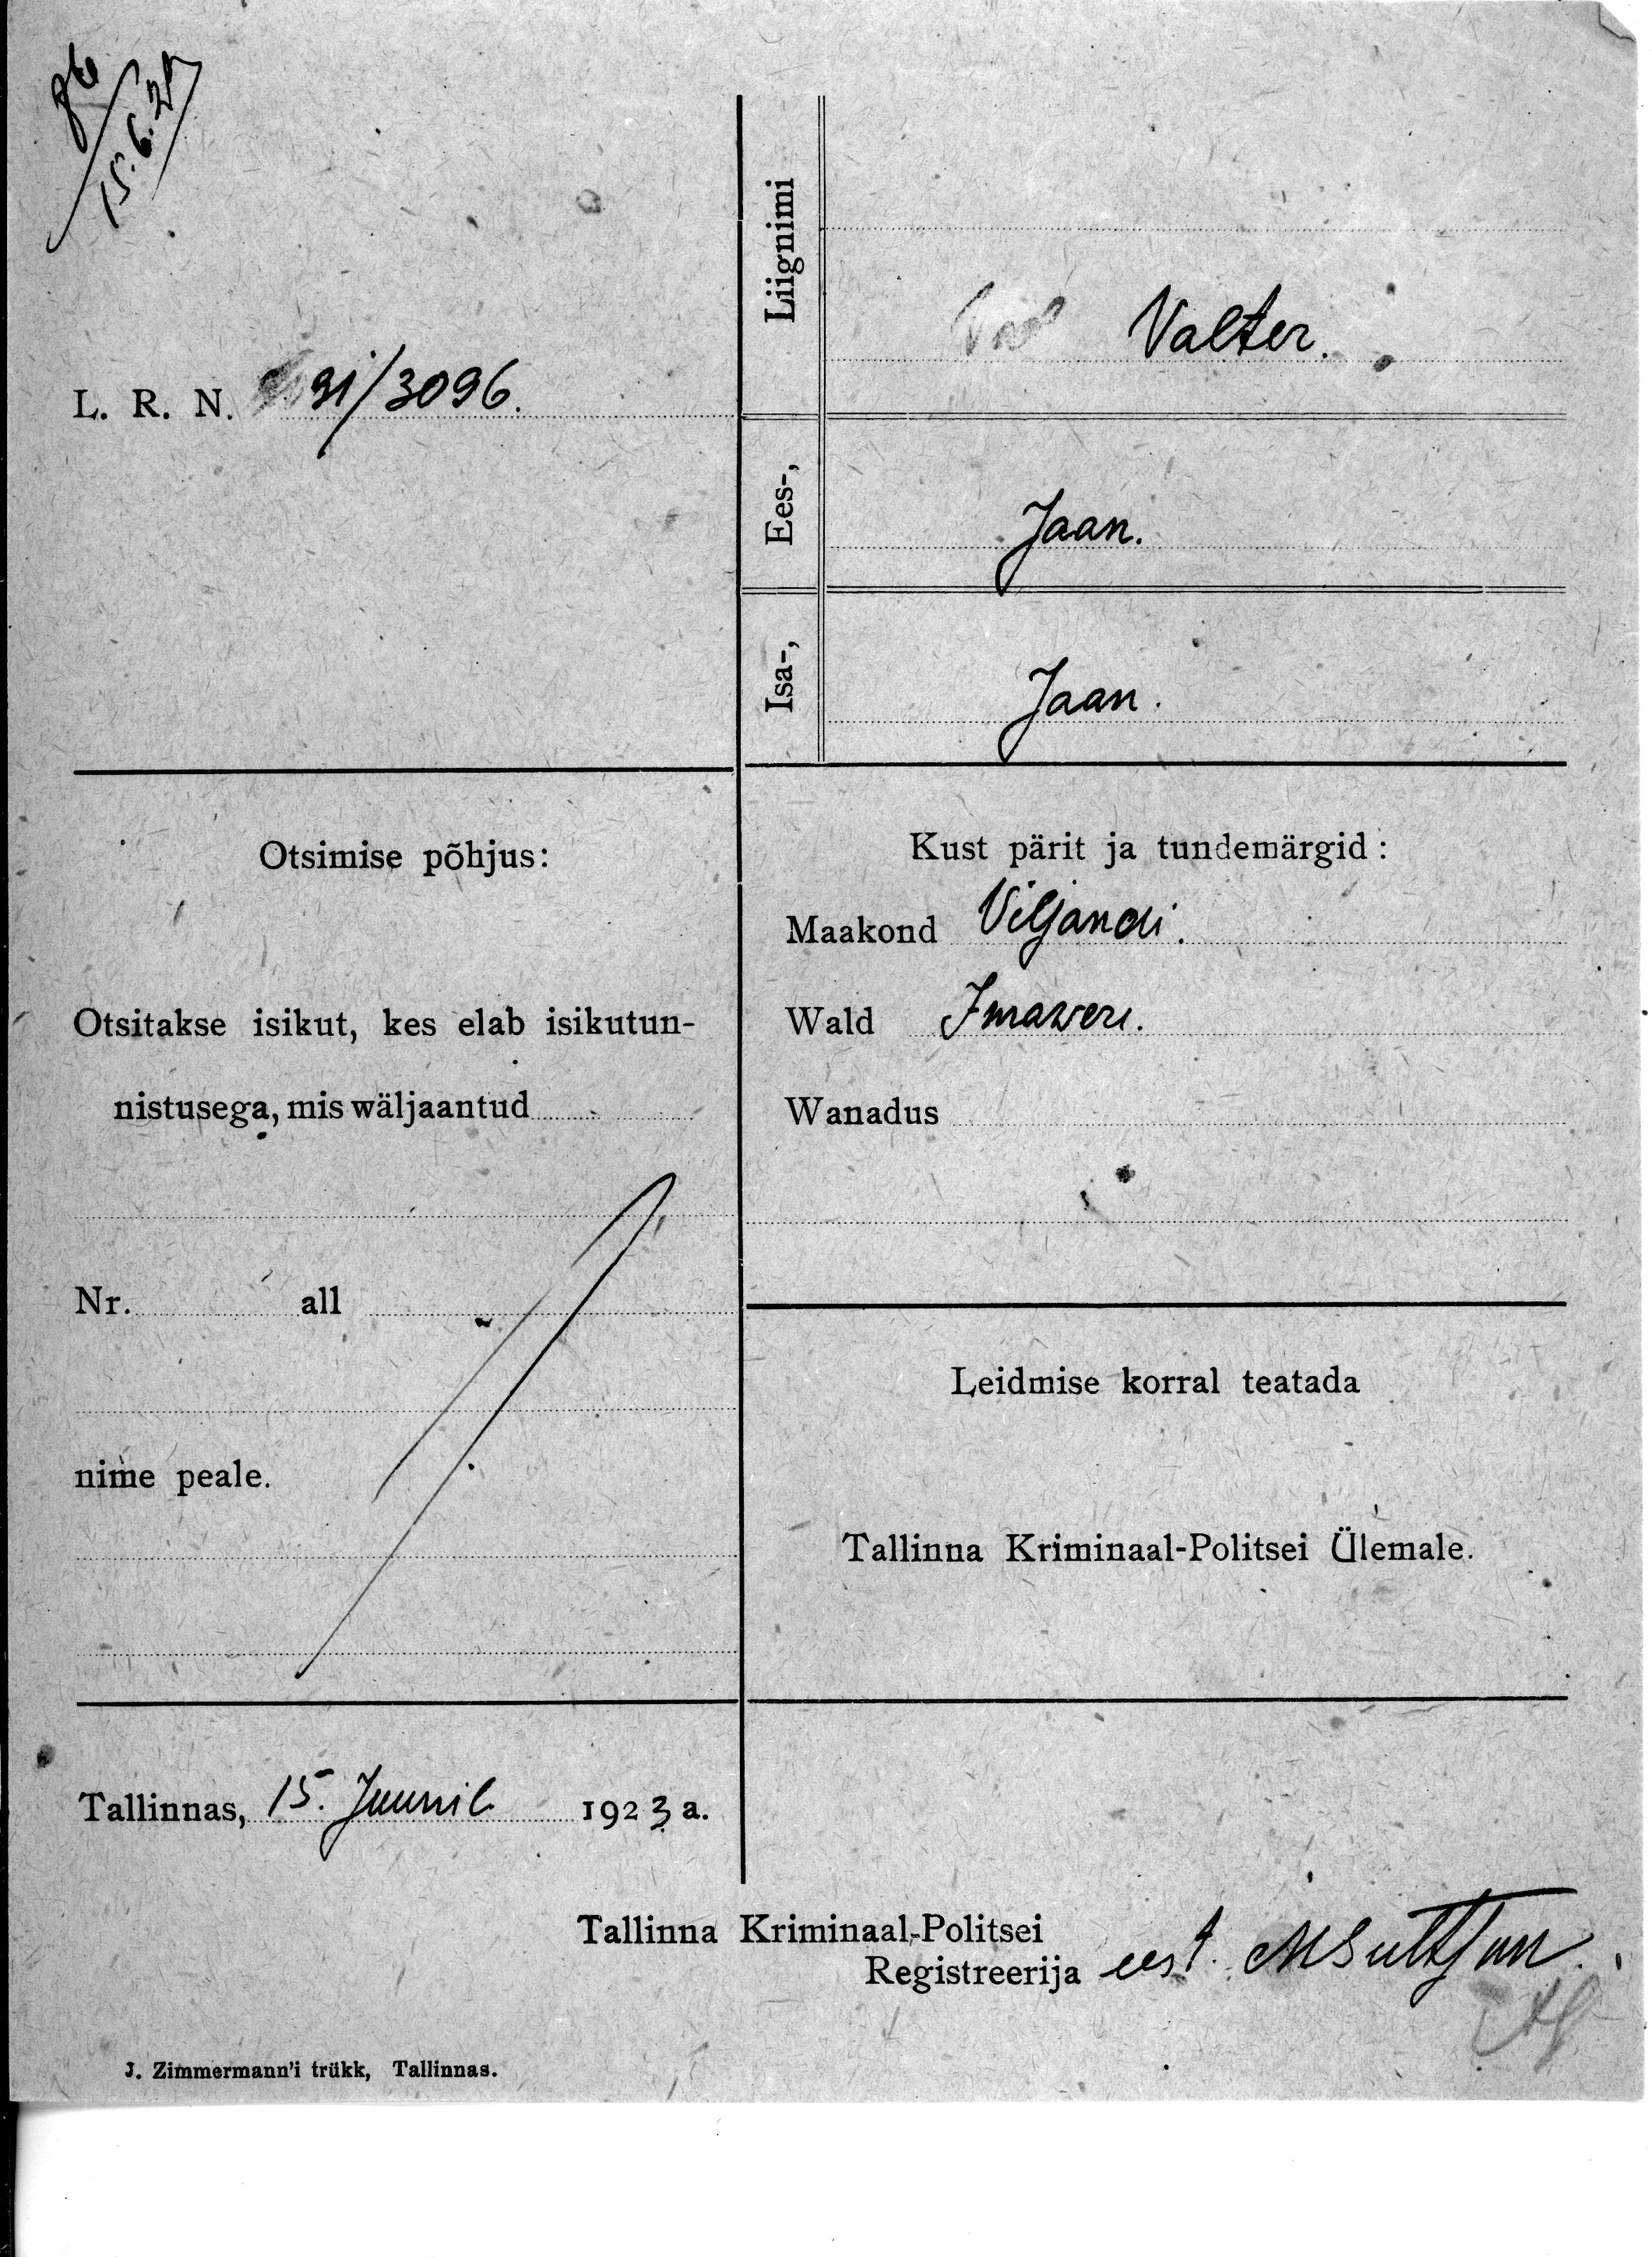 15.6.2
L. R. N. 91/3096.
Liignimi
Valter.
Ees-,
Jaan.
Isa-,
Jaan.
Otsimise põhjus:
Otsitakse isikut, kes elab isikutun-
nistusega, mis wäljaantud
Nr. all
nime peale.
Tallinnas, 15. Juunil 1923 a.
Kust pärit ja tundemärgid:
Maakond Viljandi.
Wald Imaweri.
Wanadus
Leidmise korral teatada
Tallinna Kriminaal-Politsei Ülemale.
Tallinna Kriminaal-Politsei
Registreerija eest.
J. Zimmermann'i trükk, Tallinnas.